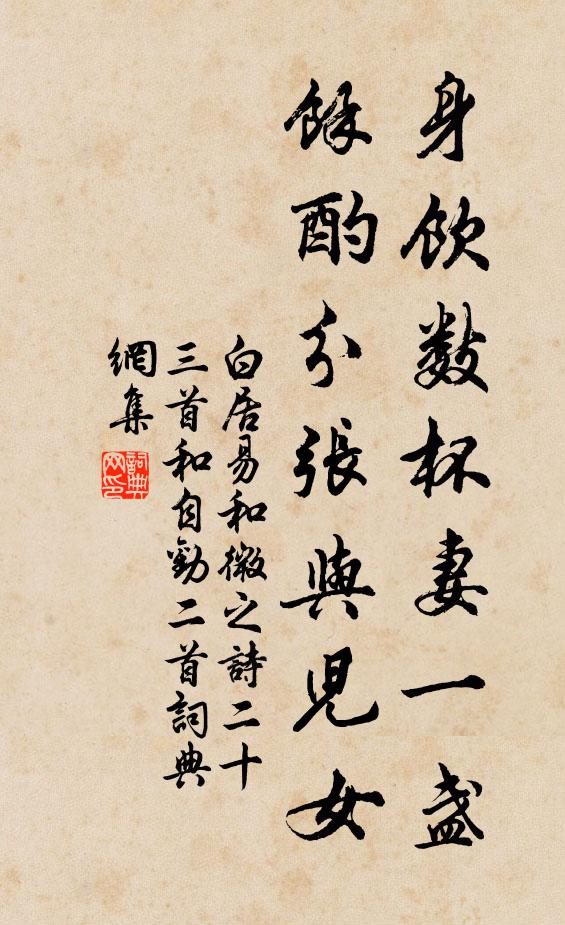 身飲數杯妻一盞
餘酌分張與兒女
白居易和微之詩二十
三首和自勸二首詞典
網集
詞典
网印